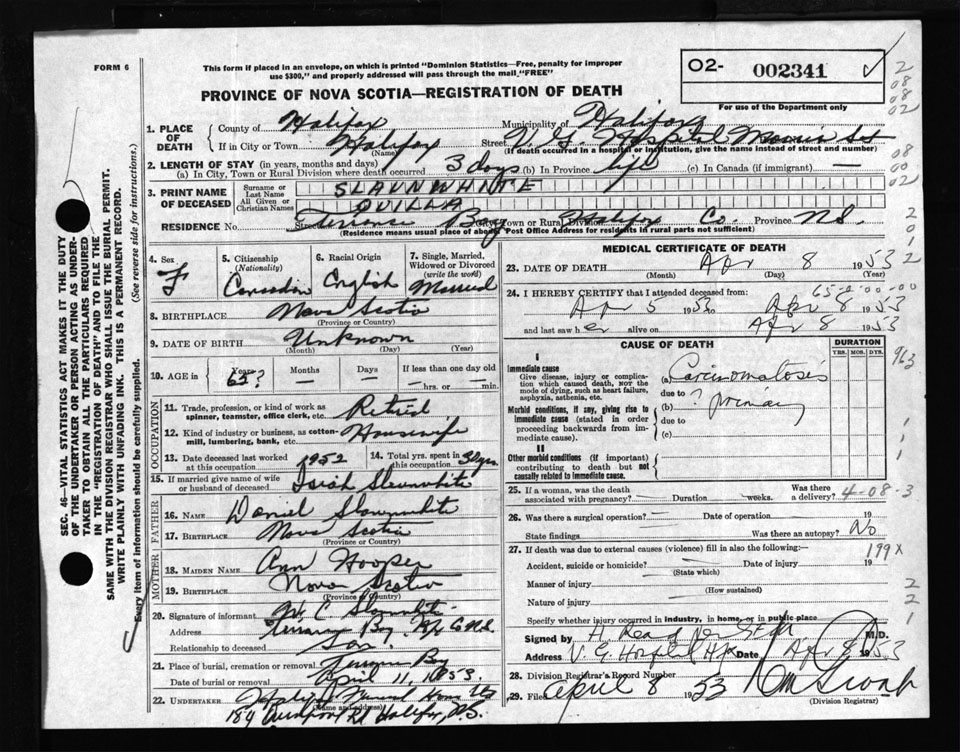 FORM 6
This form if placed in an envelope, on which is printed "Dominion Statistics—Free, penalty for improper
use $300," and properly addressed will pass through the mail "FREE"
PROVINCE OF NOVA SCOTIA—REGISTRATION OF DEATH
O2- 002341
For use of the Department only
1. PLACE OF DEATH
County of Halifax Municipality of Halifax
If in City or Town Halifax Street V. G. Hospital Morris St
(Name) (If death occurred in a hospital or institution, give the name instead of street and number)
2. LENGTH OF STAY (in years, months and days)
(a) In City, Town or Rural Division where death occurred 3 days (b) In Province life (c) In Canada (if immigrant) —
3. PRINT NAME OF DECEASED
Surname or Last Name SLAUNWHITE
All Given or Christian Names OVILLA
RESIDENCE No. Street Terience Bay City, Town or Rural Division Halifax Co. Province N.S.
(Residence means usual place of abode. Post Office Address for residents in rural parts not sufficient)
4. Sex F
5. Citizenship (Nationality) Canadian
6. Racial Origin English
7. Single, Married, Widowed or Divorced (write the word) Married
8. BIRTHPLACE Nova Scotia
(Province or Country)
9. DATE OF BIRTH Unknown
(Month) (Day) (Year)
10. AGE in Years 62? Months — Days — If less than one day old
— hrs. or — min.
OCCUPATION
11. Trade, profession, or kind of work as spinner, teamster, office clerk, etc. Retired
12. Kind of industry or business, as cotton-mill, lumbering, bank, etc. Housewife
13. Date deceased last worked at this occupation 1952
14. Total yrs. spent in this occupation 32 yrs.
15. If married give name of wife or husband of deceased Isiah Slaunwhite
FATHER
16. NAME Daniel Slaunwhite
17. BIRTHPLACE Nova Scotia
(Province or Country)
MOTHER
18. MAIDEN NAME Ann Hooper
19. BIRTHPLACE Nova Scotia
(Province or Country)
20. Signature of informant C Slaunwhite
Address Bay, Hfx Co N.S.
Relationship to deceased Son
21. Place of burial, cremation or removal Bay
Date of burial or removal April 11, 1953.
22. UNDERTAKER Funeral Home
(Name and address)
184 Halifax, N.S.
MEDICAL CERTIFICATE OF DEATH
23. DATE OF DEATH Apr 8 1953
(Month) (Day) (Year)
24. I HEREBY CERTIFY that I attended deceased from:
Apr 5 1953 to Apr 8 1953
and last saw her alive on Apr 8 1953
CAUSE OF DEATH
DURATION
YRS. MOS. DYS.
I
Immediate cause
Give disease, injury or complication which caused death, NOT the mode of dying, such as heart failure, asphyxia, asthenia, etc.
(a) Carcinomatosis
due to
Morbid conditions, if any, giving rise to immediate cause (stated in order proceeding backwards from immediate cause).
(b) ? primary
due to
(c)
II
Other morbid conditions (if important) contributing to death but not causally related to immediate cause.
25. If a woman, was the death associated with pregnancy? — Duration — weeks. Was there a delivery? 4-08-3
26. Was there a surgical operation? — Date of operation 19
State findings Was there an autopsy? No
27. If death was due to external causes (violence) fill in also the following:—
199X
Accident, suicide or homicide? Date of injury 19
(State which)
Manner of injury
(How sustained)
Nature of injury
Specify whether injury occurred in industry, in home, or in public place
Signed by M.D.
Address V. G. Hospital Hfx Date Apr 8 1953
28. Division Registrar's Record Number
29. Filed April 8 1953
(Division Registrar)
SEC. 46—VITAL STATISTICS ACT MAKES IT THE DUTY
OF THE UNDERTAKER OR PERSON ACTING AS UNDER-
TAKER TO OBTAIN ALL THE PARTICULARS REQUIRED
IN THE "REGISTRATION OF DEATH" AND TO FILE THE
SAME WITH THE DIVISION REGISTRAR WHO SHALL ISSUE THE BURIAL PERMIT.
WRITE PLAINLY WITH UNFADING INK. THIS IS A PERMANENT RECORD.
Every item of information should be carefully supplied. (See reverse side for instructions.)